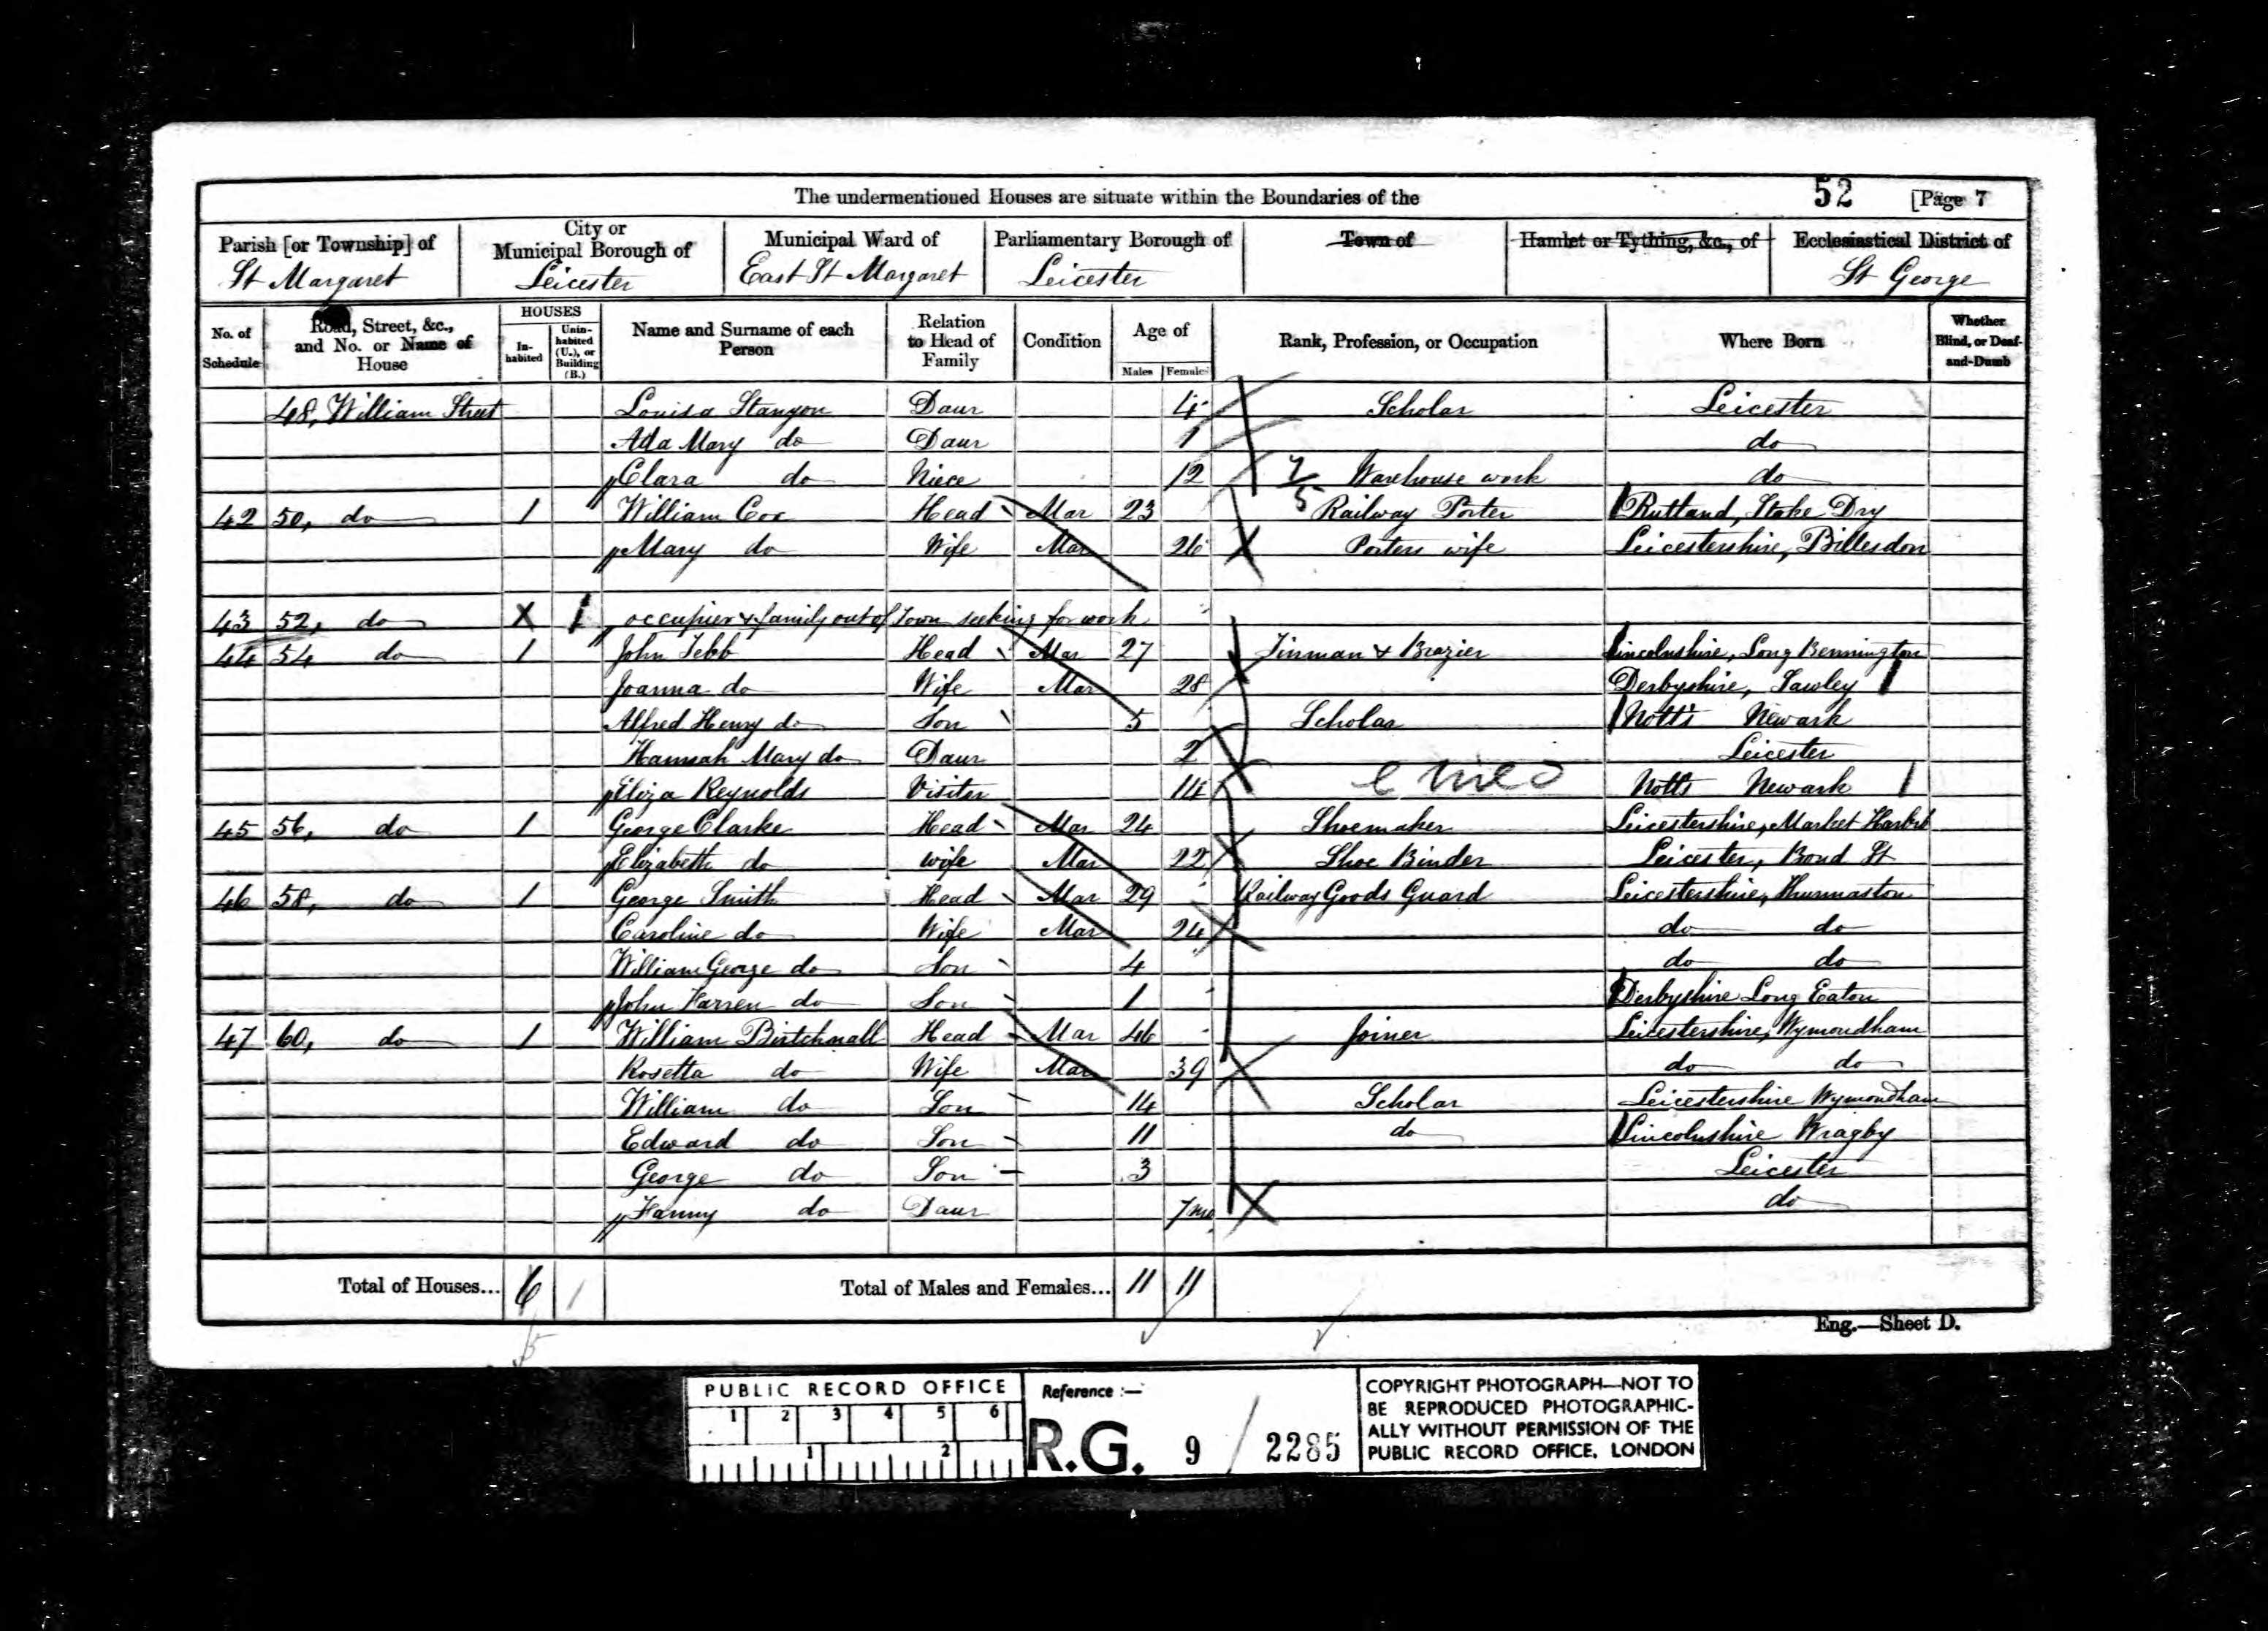 The undermentioned Houses are situate within the Boundaries of the 52 [Page 7
Parish [or Township] of St Margaret
City or Municipal Borough of Leicester
Municipal Ward of East St Margaret
Parliamentary Borough of Leicester
Town of
Hamlet or Tything, &c., of
Ecclesiastical District of St George
No. of Schedule
Road, Street, &c., and No. or Name of House
HOUSES
In-habited
Unin-habited (U.), or Building (B.)
Name and Surname of each Person
Relation to Head of Family
Condition
Age of
Males Females
Rank, Profession, or Occupation
Where Born
Whether Blind, or Deaf-and-Dumb
48, William Street Louisa Stanyon Daur 4 Scholar Leicester
Ada Mary do Daur 1 do
Clara do Niece 12 Warehouse work do
42 50, do 1 William Cox Head Mar 23 Railway Porter Rutland, Stoke Dry
Mary do Wife Mar 26 Porters wife Leicestershire, Billesdon
43 52, do X 1 occupier & family out of Town seeking for work
44 54 do 1 John Tebb Head Mar 27 Tinman & Brazier Lincolnshire, Long Bennington
Joanna do Wife Mar 28 Derbyshire, Sawley
Alfred Henry do Son 5 Scholar Notts Newark
Hannah Mary do Daur 2 Leicester
Eliza Reynolds Visitor 14 Notts Newark
45 56, do 1 George Clarke Head Mar 24 Shoemaker Leicestershire, Market Harbro
Elizabeth do Wife Mar 22 Shoe Binder Leicester, Bond St
46 58, do 1 George Smith Head Mar 29 Railway Goods Guard Leicestershire, Thurmaston
Caroline do Wife Mar 24 do do
William George do Son 4 do do
John Farren do Son 1 Derbyshire Long Eaton
47 60, do 1 William Birtchnall Head Mar 46 Joiner Leicestershire, Wymondham
Rosetta do Wife Mar 39 do do
William do Son 14 Scholar Leicestershire Wymondham
Edward do Son 11 do Lincolnshire Wragby
George do Son 3 Leicester
Fanny do Daur 7 mo do
Total of Houses... 6 1 Total of Males and Females... 11 11
Eng.—Sheet D.
PUBLIC RECORD OFFICE
1 2 3 4 5 6
1 2
Reference :—
R.G. 9 / 2285
COPYRIGHT PHOTOGRAPH—NOT TO
BE REPRODUCED PHOTOGRAPHIC-
ALLY WITHOUT PERMISSION OF THE
PUBLIC RECORD OFFICE, LONDON